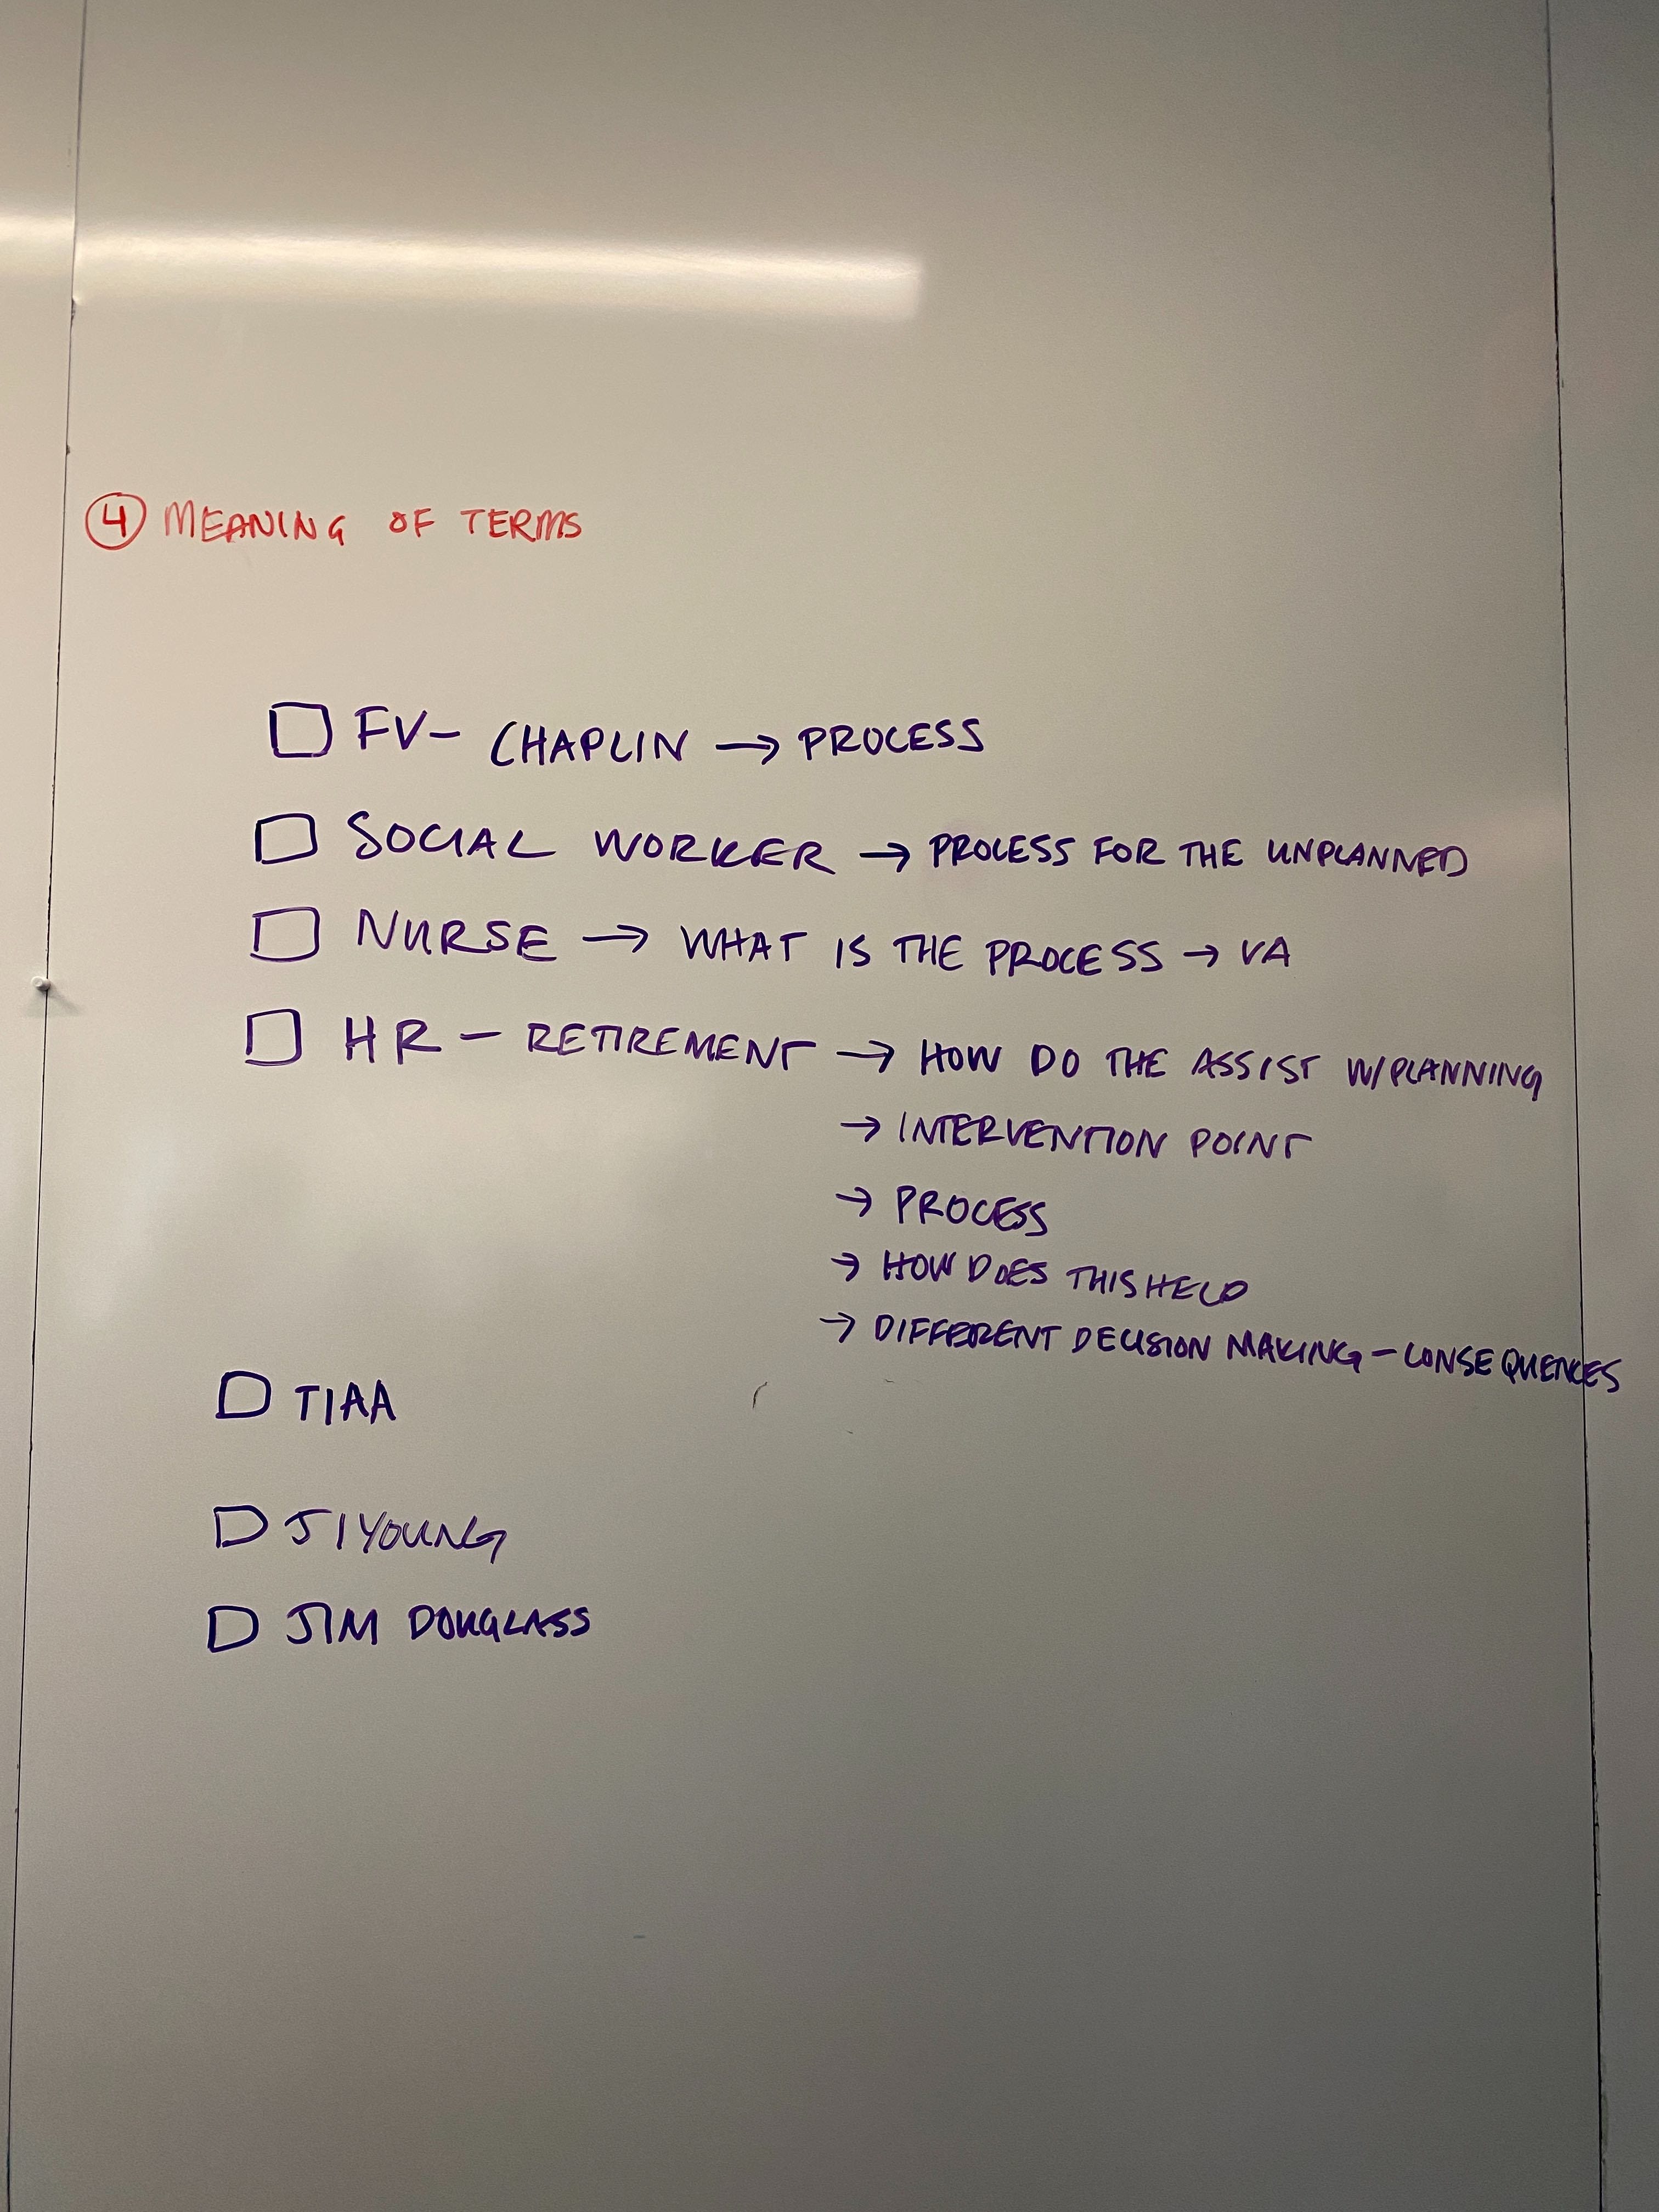 ④ MEANING OF TERMS
☐ FV- CHAPLIN → PROCESS
☐ SOCIAL WORKER → PROCESS FOR THE UNPLANNED
☐ NURSE → WHAT IS THE PROCESS → VA
☐ HR - RETIREMENT → HOW DO THE ASSIST W/PLANNING
→ INTERVENTION POINT
→ PROCESS
→ HOW DOES THIS HELP
→ DIFFERENT DECISION MAKING - CONSEQUENCES
☐ TIAA
☐ JIYOUNG
☐ JIM DOUGLASS